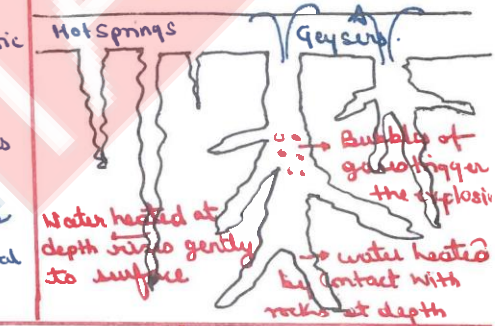 Hot Springs
Geysers
Bubbles of
gases trigger
the explosion
Water heated at
depth rises gently
to surface
water heated
by contact with
rocks at depth